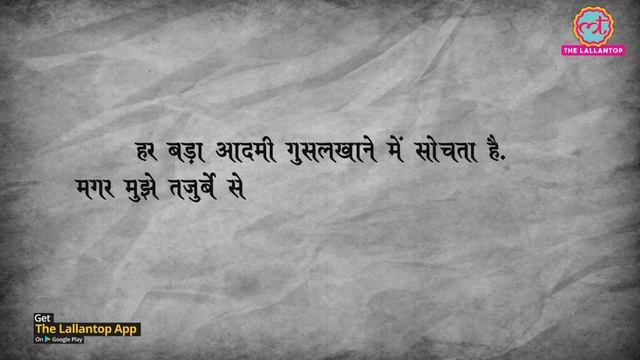 THE LALLANTOP
हर बड़ा आदमी गुसलखाने में सोचता है.
मगर मुझे तजुर्बे से
Get
The Lallantop App
On Google Play